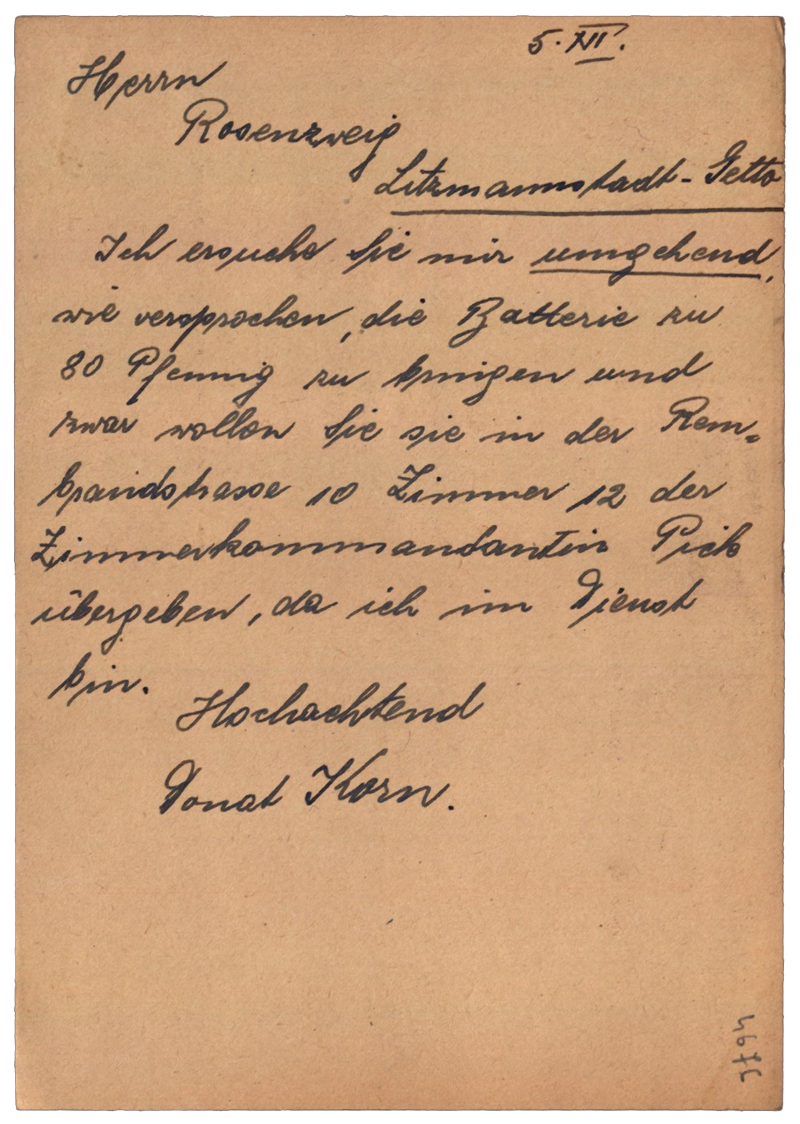 5. XII.
Herrn
Rosenzweig
Litzmannstadt-Getto
Ich ersuche Sie mir umgehend,
wie versprochen, die Batterie zu
80 Pfennig zu bringen und
zwar wollen Sie sie in der Rem-
brandstrasse 10 Zimmer 12 der
Zimmerkommandantin Pick
übergeben, da ich im Dienst
bin.
Hochachtend
Donat Korn.